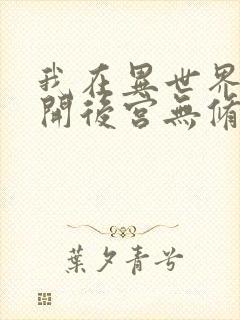 我在異世界
開後宮無脩
葉夕青兮